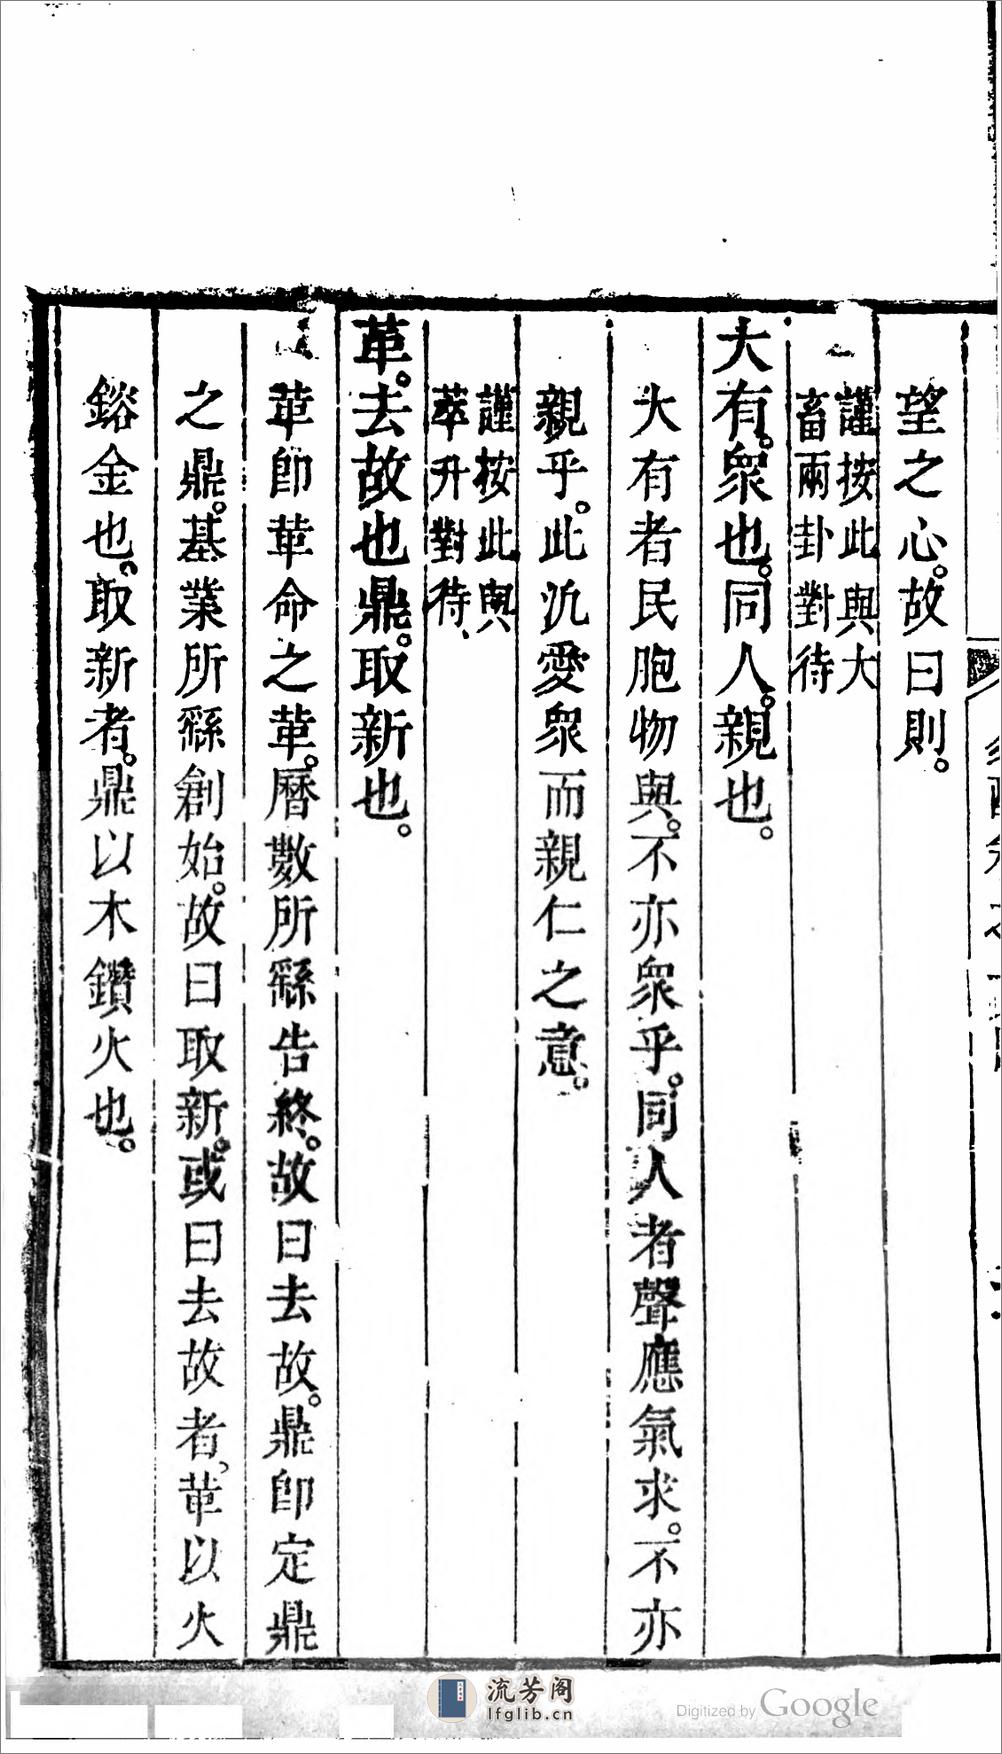 望之心。故曰則。
謹按此與大
畜兩卦對待
大有。衆也。同人。親也。
大有者民胞物與。不亦衆乎。同人者聲應氣求。不亦
親乎。此汎愛衆而親仁之意。
謹按此與
萃升對待、
革。去故也鼎。取新也。
革卽革命之革。曆數所繇告終。故曰去故。鼎卽定鼎
之鼎。基業所繇創始。故曰取新。或曰去故者。革以火
鎔金也。取新者。鼎以木鑽火也。
流芳阁
lfglib.cn
Digitized by Google